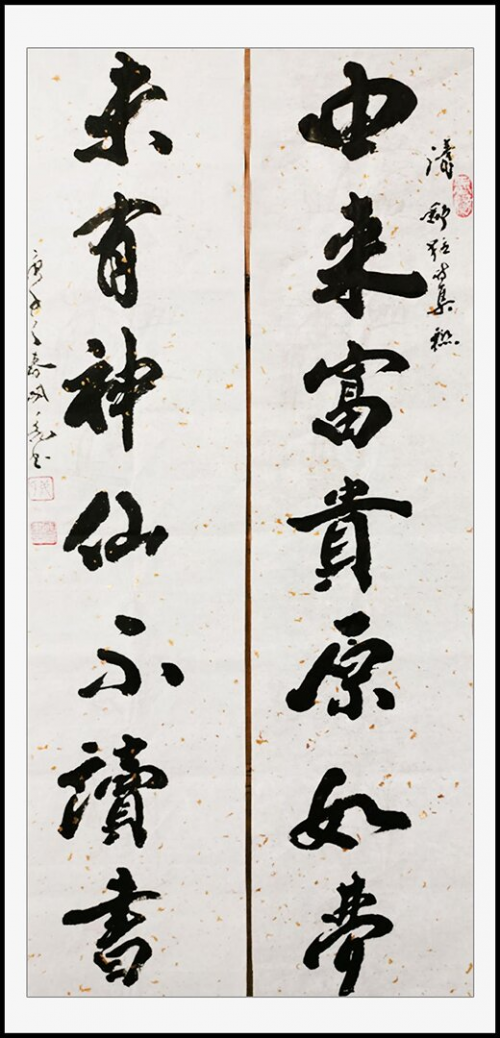 清 集聯
由来富貴原如夢
未有神仙不讀書
庚子之春 書